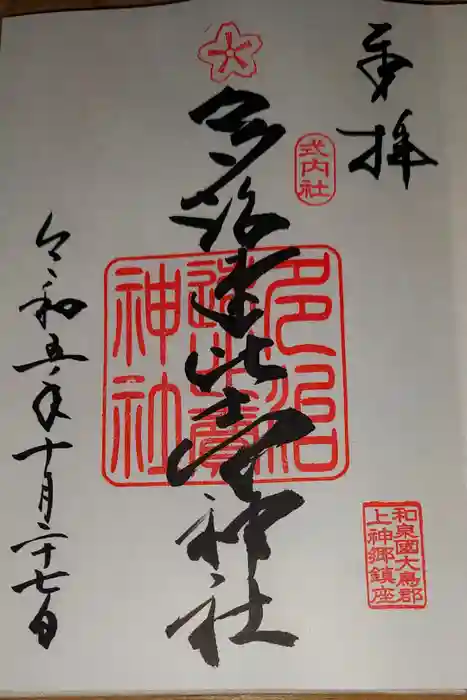 奉拝
式内社
多治速比売神社
多治
速比賣
神社
和泉國大鳥郡
上神郷鎮座
令和五年十月二十七日